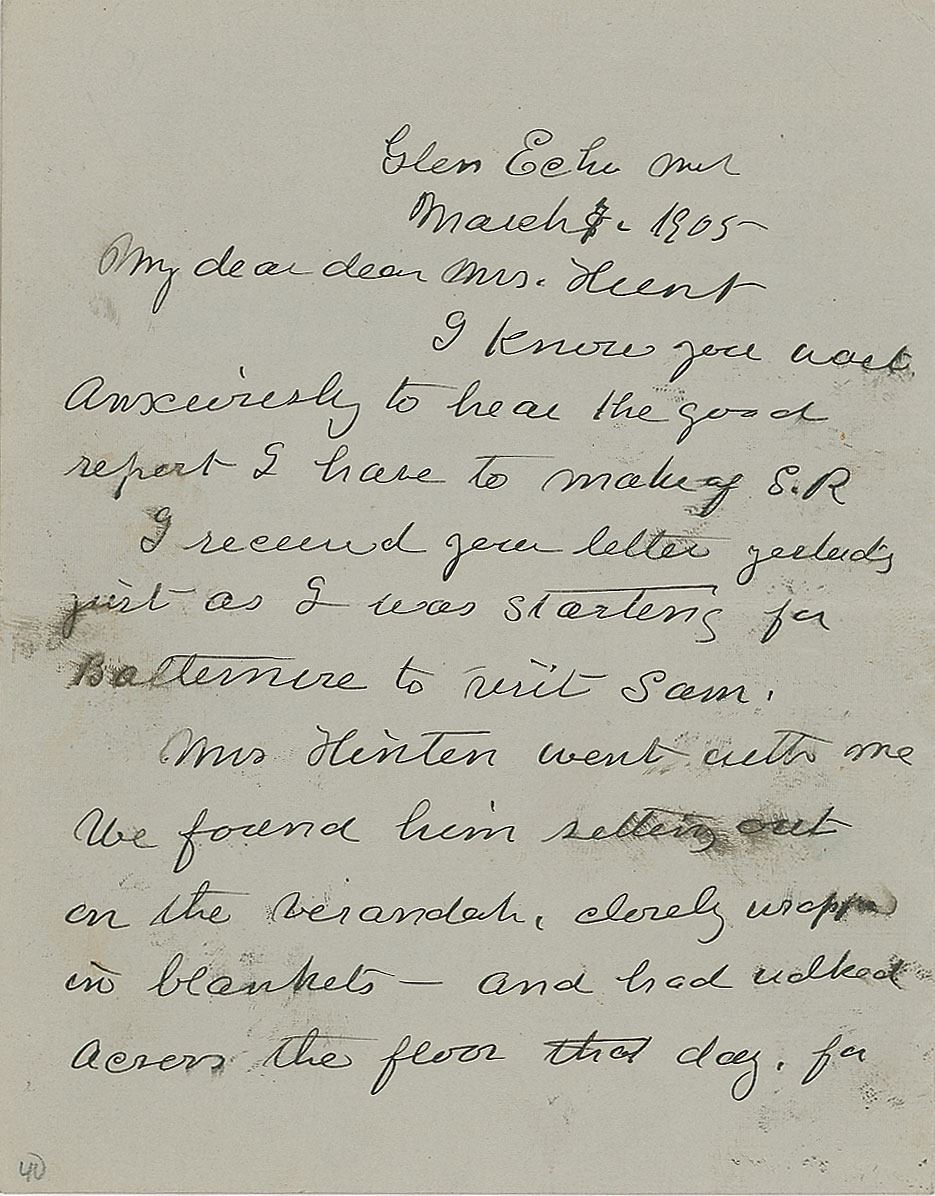 Glen Echo Md
March 7. 1905-
My dear dear Mrs. Hunt
I know you wait
Anxiously to hear the good
report I have to make of S.R
I received your letter yesterday
just as I was starting for
Baltimore to visit Sam.
Mrs Hinton went with me
We found him sitting out
on the verandah, closely wrapped
in blankets — and had walked
across the floor that day. for
40